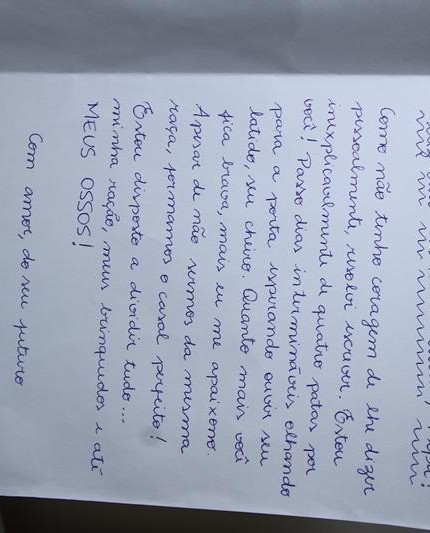 Como não tenho coragem de lhe dizer
pessoalmente, resolvi escrever. Estou
inexplicavelmente de quatro patas por
você! Passo dias intermináveis olhando
para a porta esperando ouvir seu
latido, seu cheiro. Quanto mais você
fica brava, mais eu me apaixono.
Apesar de não sermos da mesma
raça, formamos o casal perfeito!
Estou disposto a dividir tudo...
minha ração, meus brinquedos e até
MEUS OSSOS!
Com amor, do seu futuro